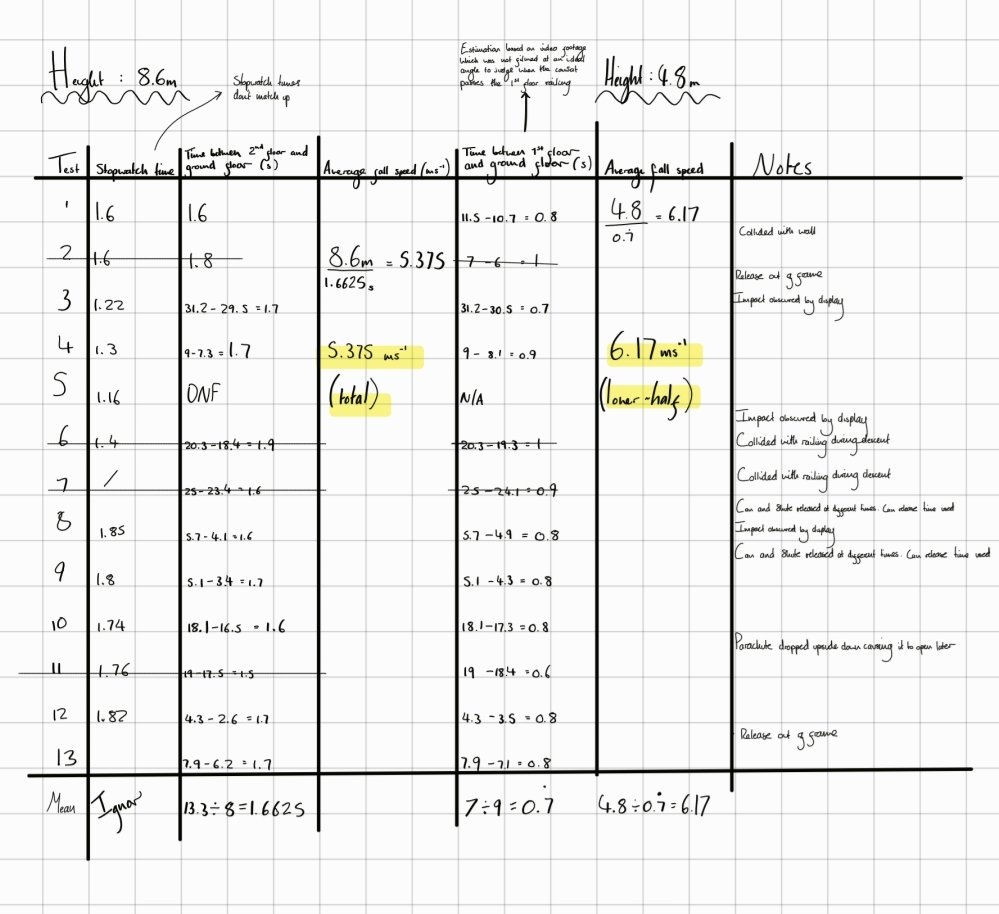 Height : 8.6m
Stopwatch times
dont match up
Estimation based on video footage
which was not filmed at an ideal
angle to judge when the contact
passes the 1st floor railing
Height : 4.8m
Test
Stopwatch time
Time between 2nd floor and
ground floor (s)
Average fall speed (ms⁻¹)
Time between 1st floor
and ground floor (s)
Average fall speed
Notes
1
1.6
1.6
11.5 - 10.7 = 0.8
4.8
0.7̇
= 6.17
Collided with wall
2
1.6
1.8
8.6m
1.6625s
= 5.375
7 - 6 = 1
Release out of frame
3
1.22
31.2 - 29.5 = 1.7
31.2 - 30.5 = 0.7
Impact obscured by display
4
1.3
9 - 7.3 = 1.7
5.375 ms⁻¹
9 - 8.1 = 0.9
6.17 ms⁻¹
5
1.16
DNF
(total)
N/A
(lower-half)
Impact obscured by display
6
1.4
20.3 - 18.4 = 1.9
20.3 - 19.3 = 1
Collided with railing during descent
7
/
25 - 23.4 = 1.6
25 - 24.1 = 0.9
Collided with railing during descent
8
1.85
5.7 - 4.1 = 1.6
5.7 - 4.9 = 0.8
Can and Shute released at different times. Can release time used
Impact obscured by display
9
1.8
5.1 - 3.4 = 1.7
5.1 - 4.3 = 0.8
Can and Shute released at different times. Can release time used
10
1.74
18.1 - 16.5 = 1.6
18.1 - 17.3 = 0.8
Parachute dropped upside down causing it to open later
11
1.76
19 - 17.5 = 1.5
19 - 18.4 = 0.6
12
1.82
4.3 - 2.6 = 1.7
4.3 - 3.5 = 0.8
Release out of frame
13
7.9 - 6.2 = 1.7
7.9 - 7.1 = 0.8
Mean
Ignor
13.3 ÷ 8 = 1.6625
7 ÷ 9 = 0.7̇
4.8 ÷ 0.7̇ = 6.17